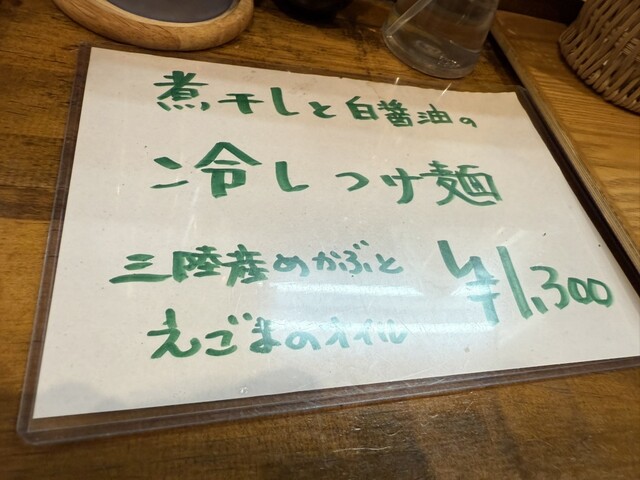 煮干しと白醤油の
冷しつけ麺
三陸産めかぶと
えごまのオイル
¥1,300